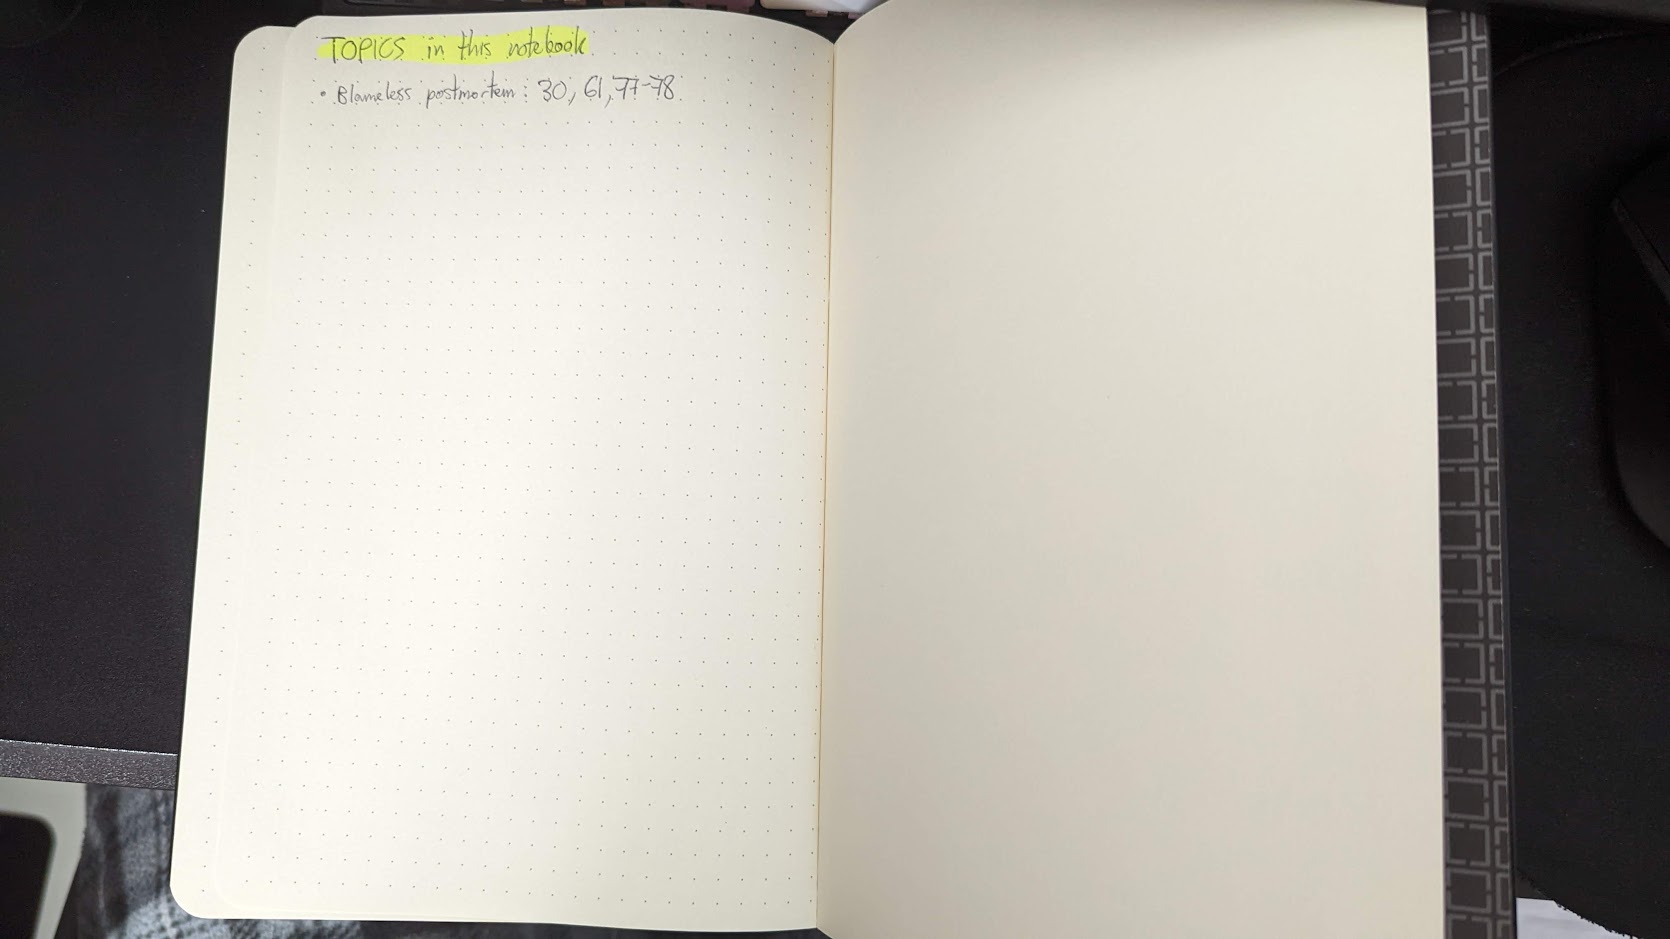 TOPICS in this notebook
• Blameless postmortem: 30, 61, 77-78